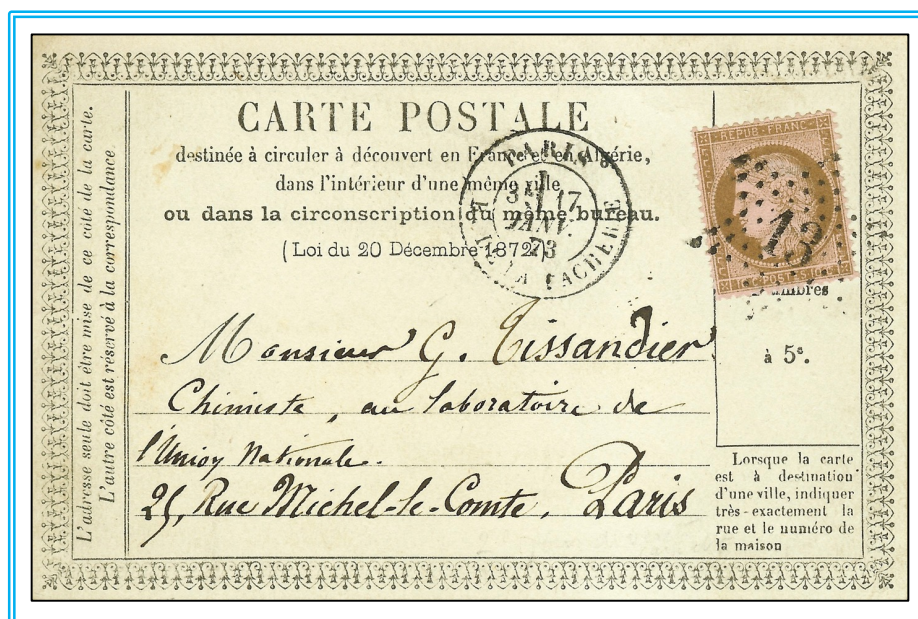 L'adresse seule doit être mise de ce côté de la carte.
L'autre côté est réservé à la correspondance
CARTE POSTALE
destinée à circuler à découvert en France et en Algérie,
dans l'intérieur d'une même ville
ou dans la circonscription du même bureau.
(Loi du 20 Décembre 1872)
PARIS
17
JANV.
73
REPUB. FRANC.
POSTES
timbres
à 5c.
Monsieur G. Tissandier
Chimiste, au laboratoire de
l'Union Nationale.
25, Rue Michel-le-Comte, Paris
Lorsque la carte
est à destination
d'une ville, indiquer
très-exactement la
rue et le numéro de
la maison